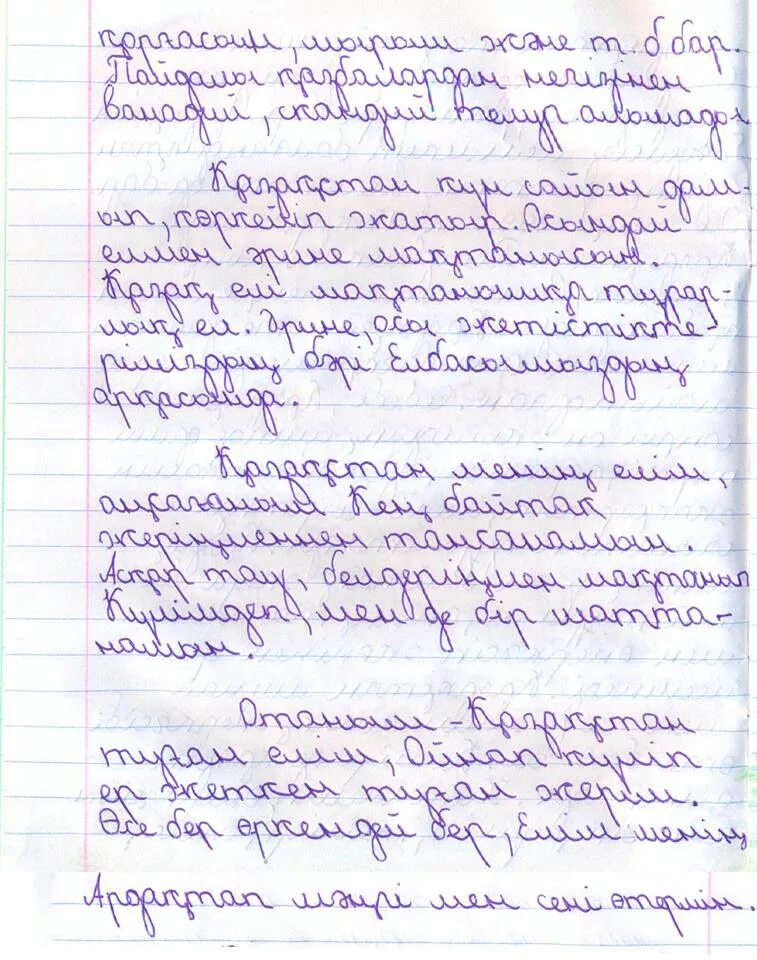 қорғасын, мырыш және т. б бар.
Пайдалы қазбалардан негізінен
ванадий, скандий темір алынады
Қазақстан күн сайын дам-
ып, көркейіп жатыр. Осындай
елмен әрине мақтанасың.
Қазақ елі мақтанышқа тұрар-
лық ел. Әрине, осы жетістікте-
ріміздің бәрі Елбасымыздың
арқасында.
Қазақстан менің елім,
аңсағаным Кең байтак
жеріңменнен тансанамын.
Асқар тау, белдеріңмен мақтанып
Күлімдеп, мен де бір шатта-
намын.
Отаным – Қазақстан
туған елім, Ойнап күліп
ер жеткен туған жерім.
Өсе бер өркендей бер, Елім менің
Ардақтап мәңгі мен сені өтермін.